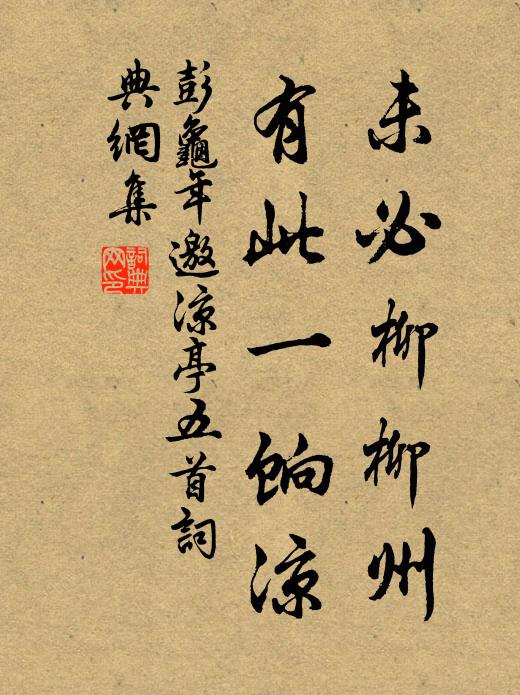 未必柳柳州
有此一餉凉
彭龜年邀凉亭五首詞
典網集
詞典網印